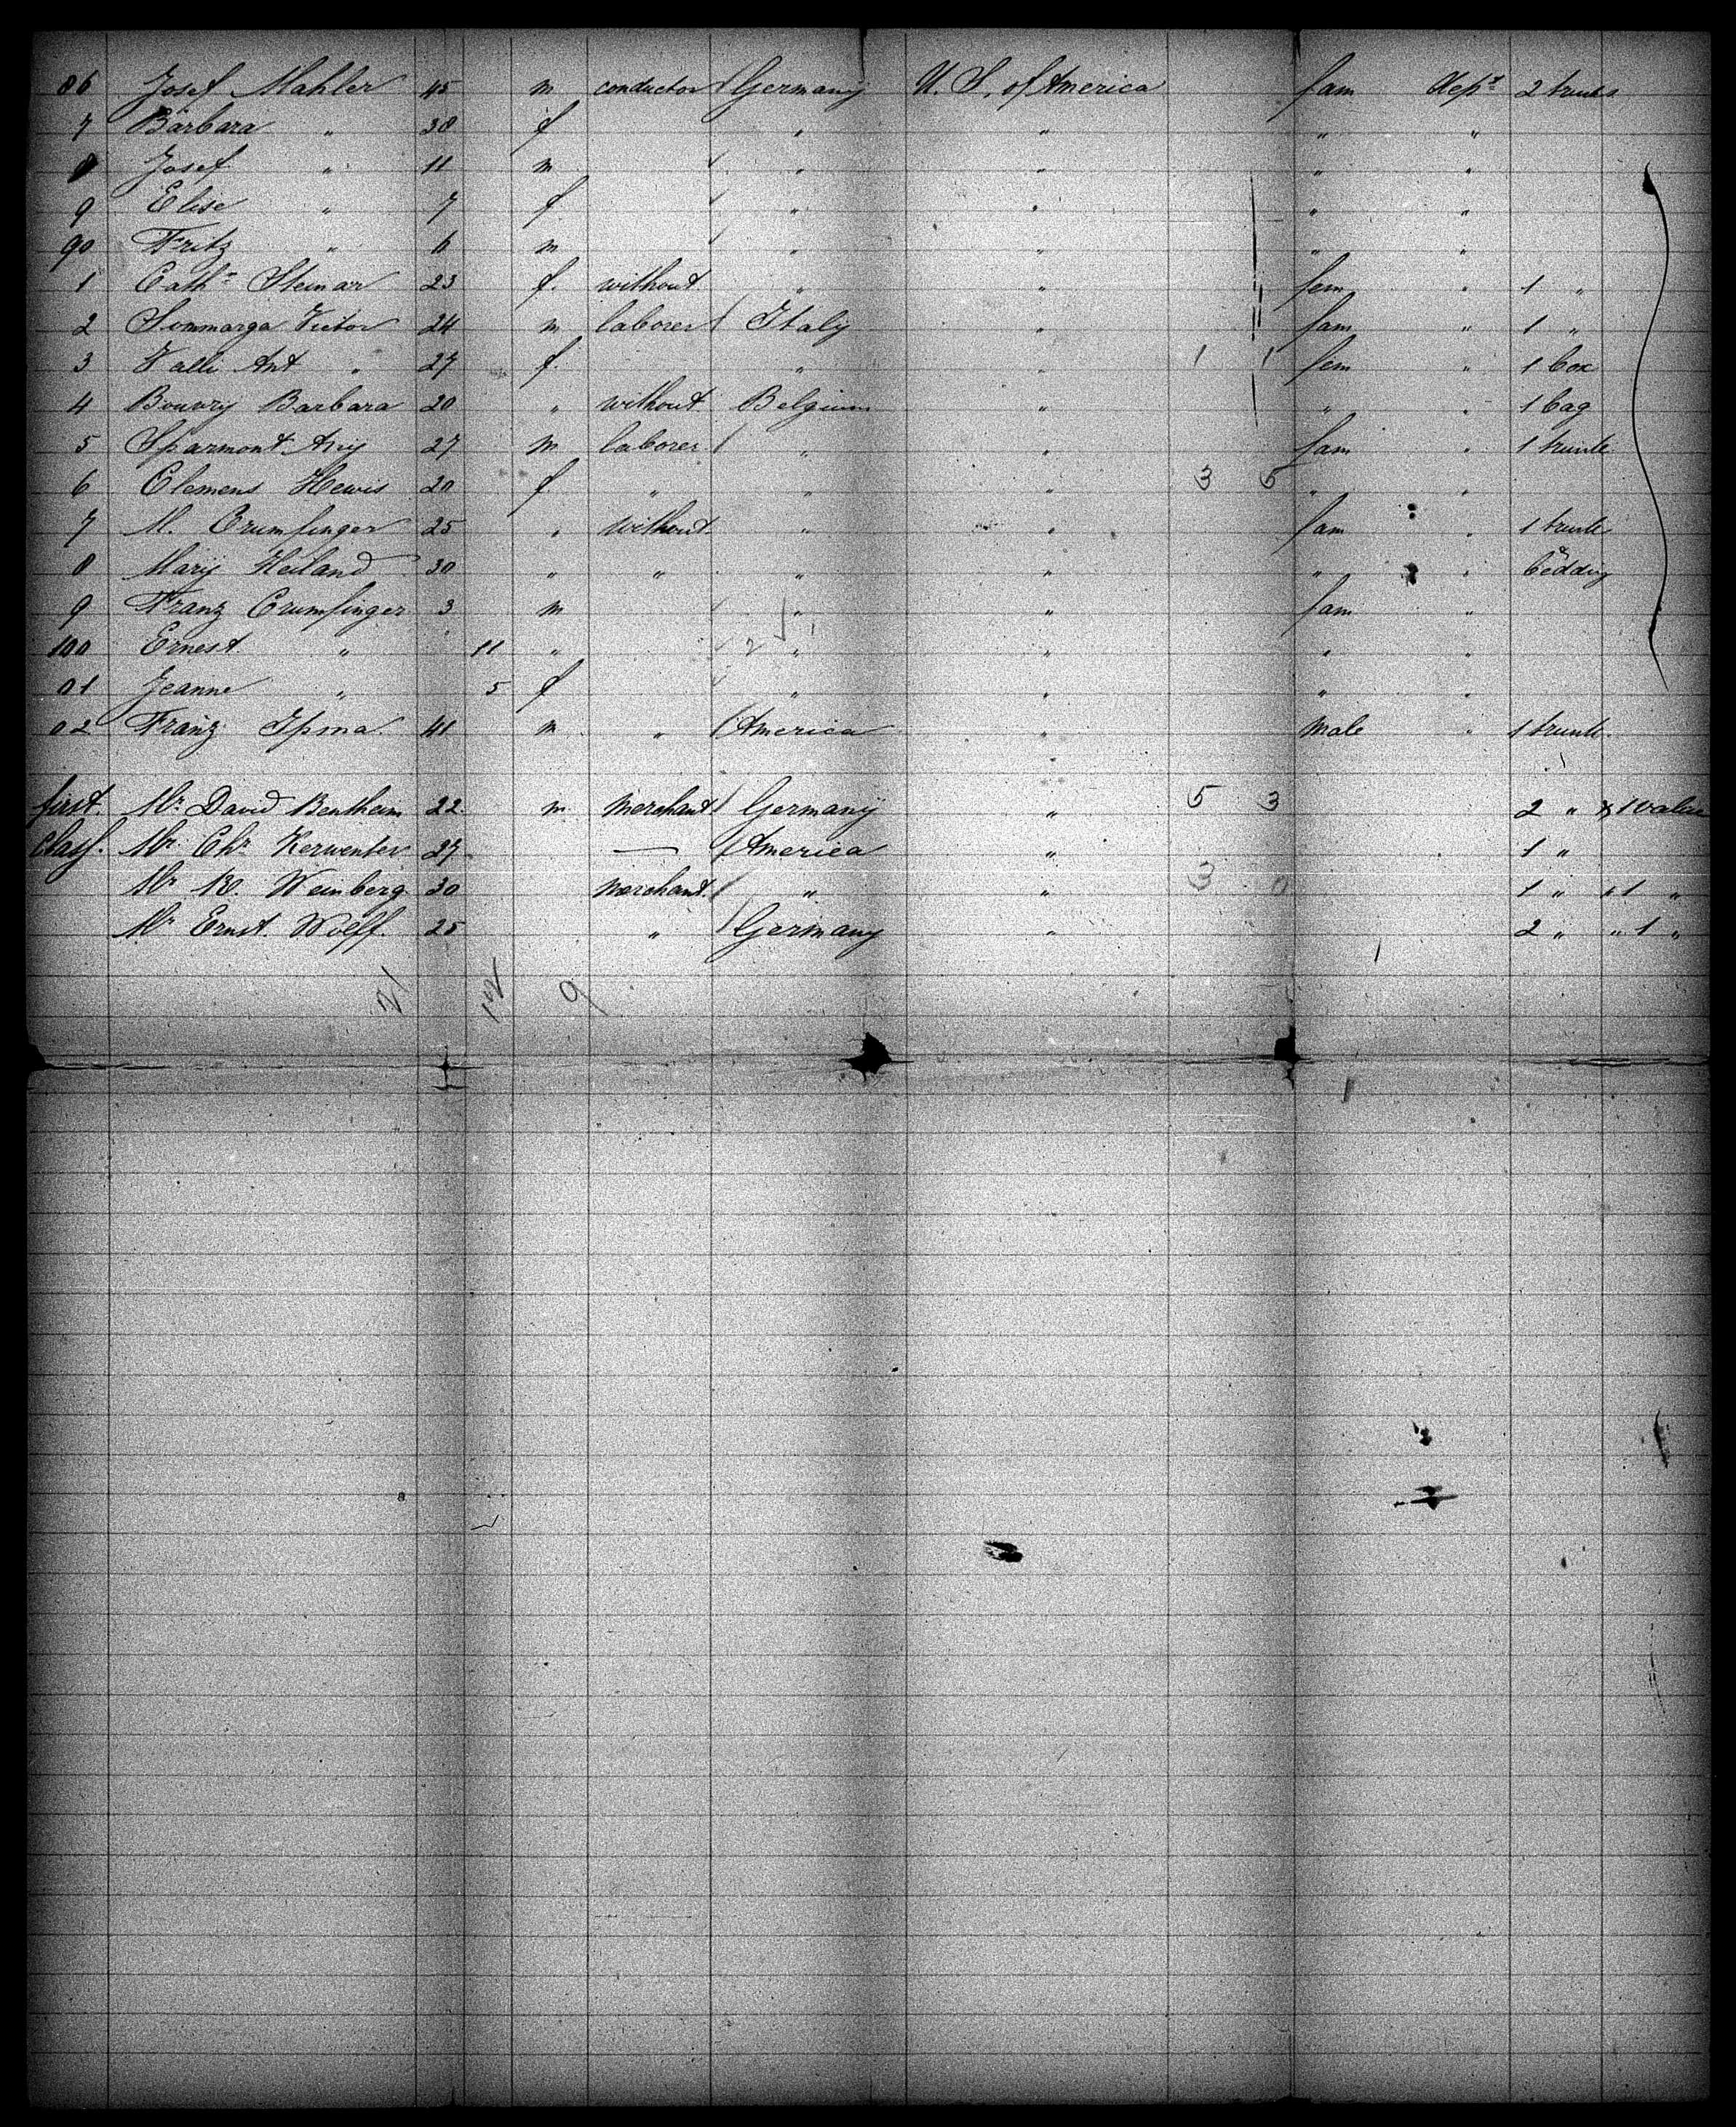 86 Josef Mahler 45 m conductor Germany U. S. of America fam dept 2 trunks
7 Barbara " 38 f " " " "
8 Josef " 11 m " " " "
9 Elise " 7 f " " " "
90 Fritz " 6 m " " " "
1 Cath. Steinar 23 f. without " " fem " 1 "
2 Sommarga Victor 24 m laborer Italy " fam " 1 "
3 Valli Ant " 27 f. " " 1 1 fem " 1 box
4 Bouvry Barbara 20 " without Belgium " " " 1 bag
5 Sparmont Any 27 m laborer " " fam " 1 trunk
6 Clemens Hewis 20 f. " " " 3 5 " "
7 M. Crumfinger 25 " without " " fam " 1 trunk
8 Mary Heiland 30 " " " " " " & bedding
9 Franz Crumfinger 3 m " " fam "
100 Ernest " 11 " " " " "
01 Jeanne " 5 f " " " "
02 Franz Ipma 41 m " America " male " 1 trunk
first. Mr David Bentheim 22 m. merchant Germany " 5 3 2 " & 1 value
class. Mr Chr Kerwenter 27 — America " 1 "
Mr Weinberg 30 merchant " " 3 0 1 " " 1 "
Mr Ernst Wolff. 25 " Germany " 2 " " 1 "
21 12 9